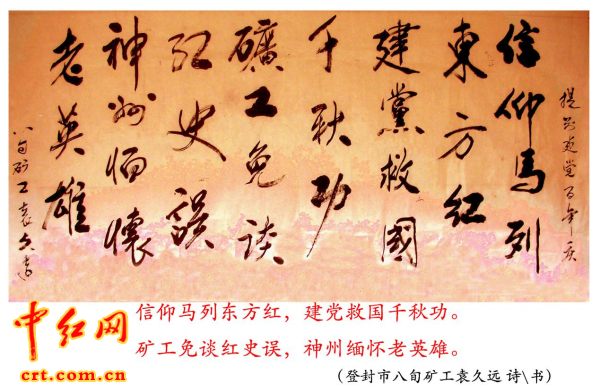 建党百年庆
信仰馬列
東方红
建黨救國
千秋功
礦工免谈
红史誤
神州缅懷
老英雄
八旬矿工袁久远
中红网
crt.com.cn
信仰马列东方红，建党救国千秋功。
矿工免谈红史误，神州缅怀老英雄。
（登封市八旬矿工袁久远 诗\书）